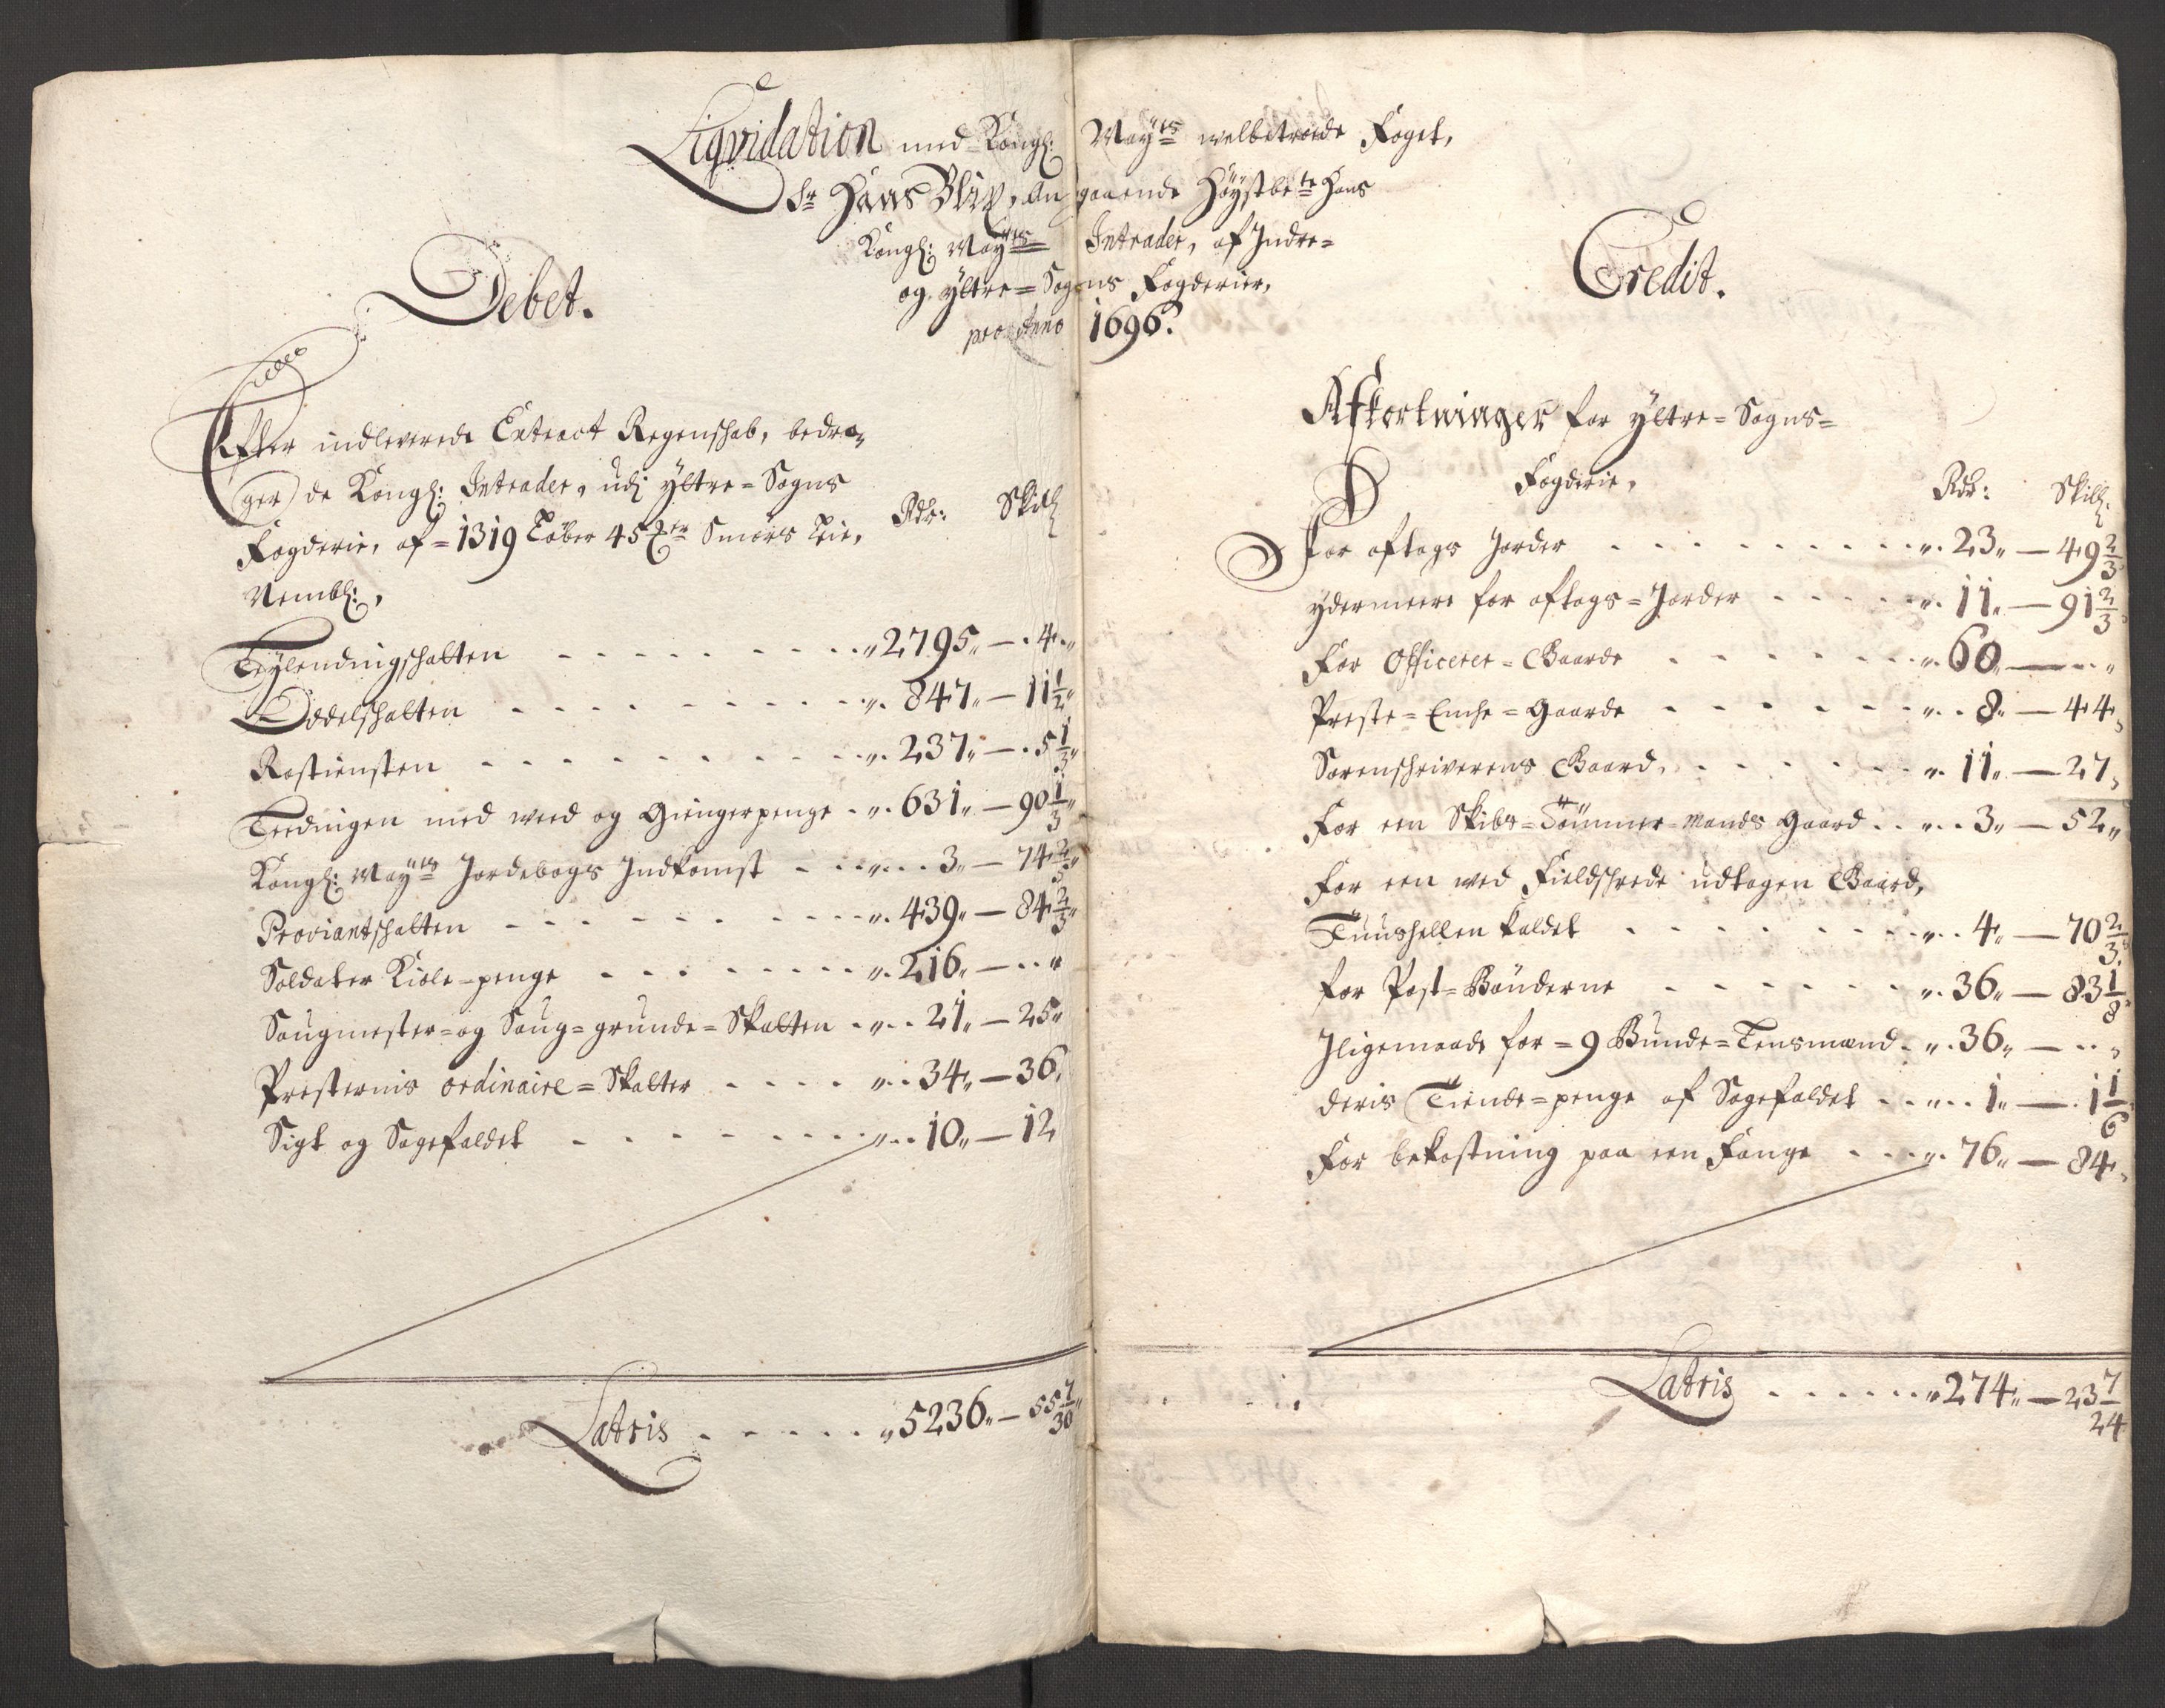 Liqvidation med Kongl: May:ts welbetroede Foget,
Sr Hans Blix, Angaaende Höÿstbete Hans
Kongl: May:ts Intrader, af Indre=
og Ÿttre=Sogns Fogderier,
pro Anno 1696.
Debet.
Efter indleverede Extract Regenschab, bedra,,
ger de Kongl: Intrader, udj Ÿttre=Sogns
Fogderie, af =1319 Löber 45 Smörs leie, Rdr: Skill
Nembl:,
Leÿlendingschatten - - - 2795,, — . 4,,
Oddelschatten - - - 847,, — 11 1/2,,
Rostiensten - - - 237,, — . 5 1/3,,
Leedingen med weed og Giengerpenge . 631,, — 90 1/3,,
Kongl: May:ts Jordebogs Indkomst - - - 3,, — 74 2/5,,
Proviantschatten - - - 439,, — 84 2/3,,
Soldater Kiole=penge - - - 216,, — . . ,,
Saugmester=og Saug=grunde=Skatten . 21,, — 25,,
Presternis ordinaire=Skatter . . . . 34,, — 36,
Sigt og Sagefaldet - - - 10,, — 12
Latris . - - - . ,,5236,, — 55 7/30,,
Credit.
Afkortninger for Ÿttre=Sogns=
Fogderie, Rdr: Skill:
For aftags Jorder - - - 23,, — 49 2/3
ÿdermeere for aftags=Jorder - - - 11,, — 91 2/3
For Officerer=Gaarde - - - 60,, — . . ,,
Preste=Enche=Gaarde - - - 8,, — 44,
Sorenschriverens Gaard, - - - 11,, — 27,
For een Skibs=Tömmer=Mands Gaard . . 3,, — 52,,
For een wed Fieldschrede udtagen Gaard,
Tuushellen kaldet - - - 4,, — 70 2/3
for Post=Bönderne - - - 36,, — 83 1/8
Iligemaade for =9 Bunde=Lensmænd . 36,, — . . ,
deris Tiende=penge af Sagefaldet . . . 1,, — . 1 1/6
For bekostning paa een Fange . . . 76,, — 84,
Latris . . . . . ,,274,, — 23 7/24